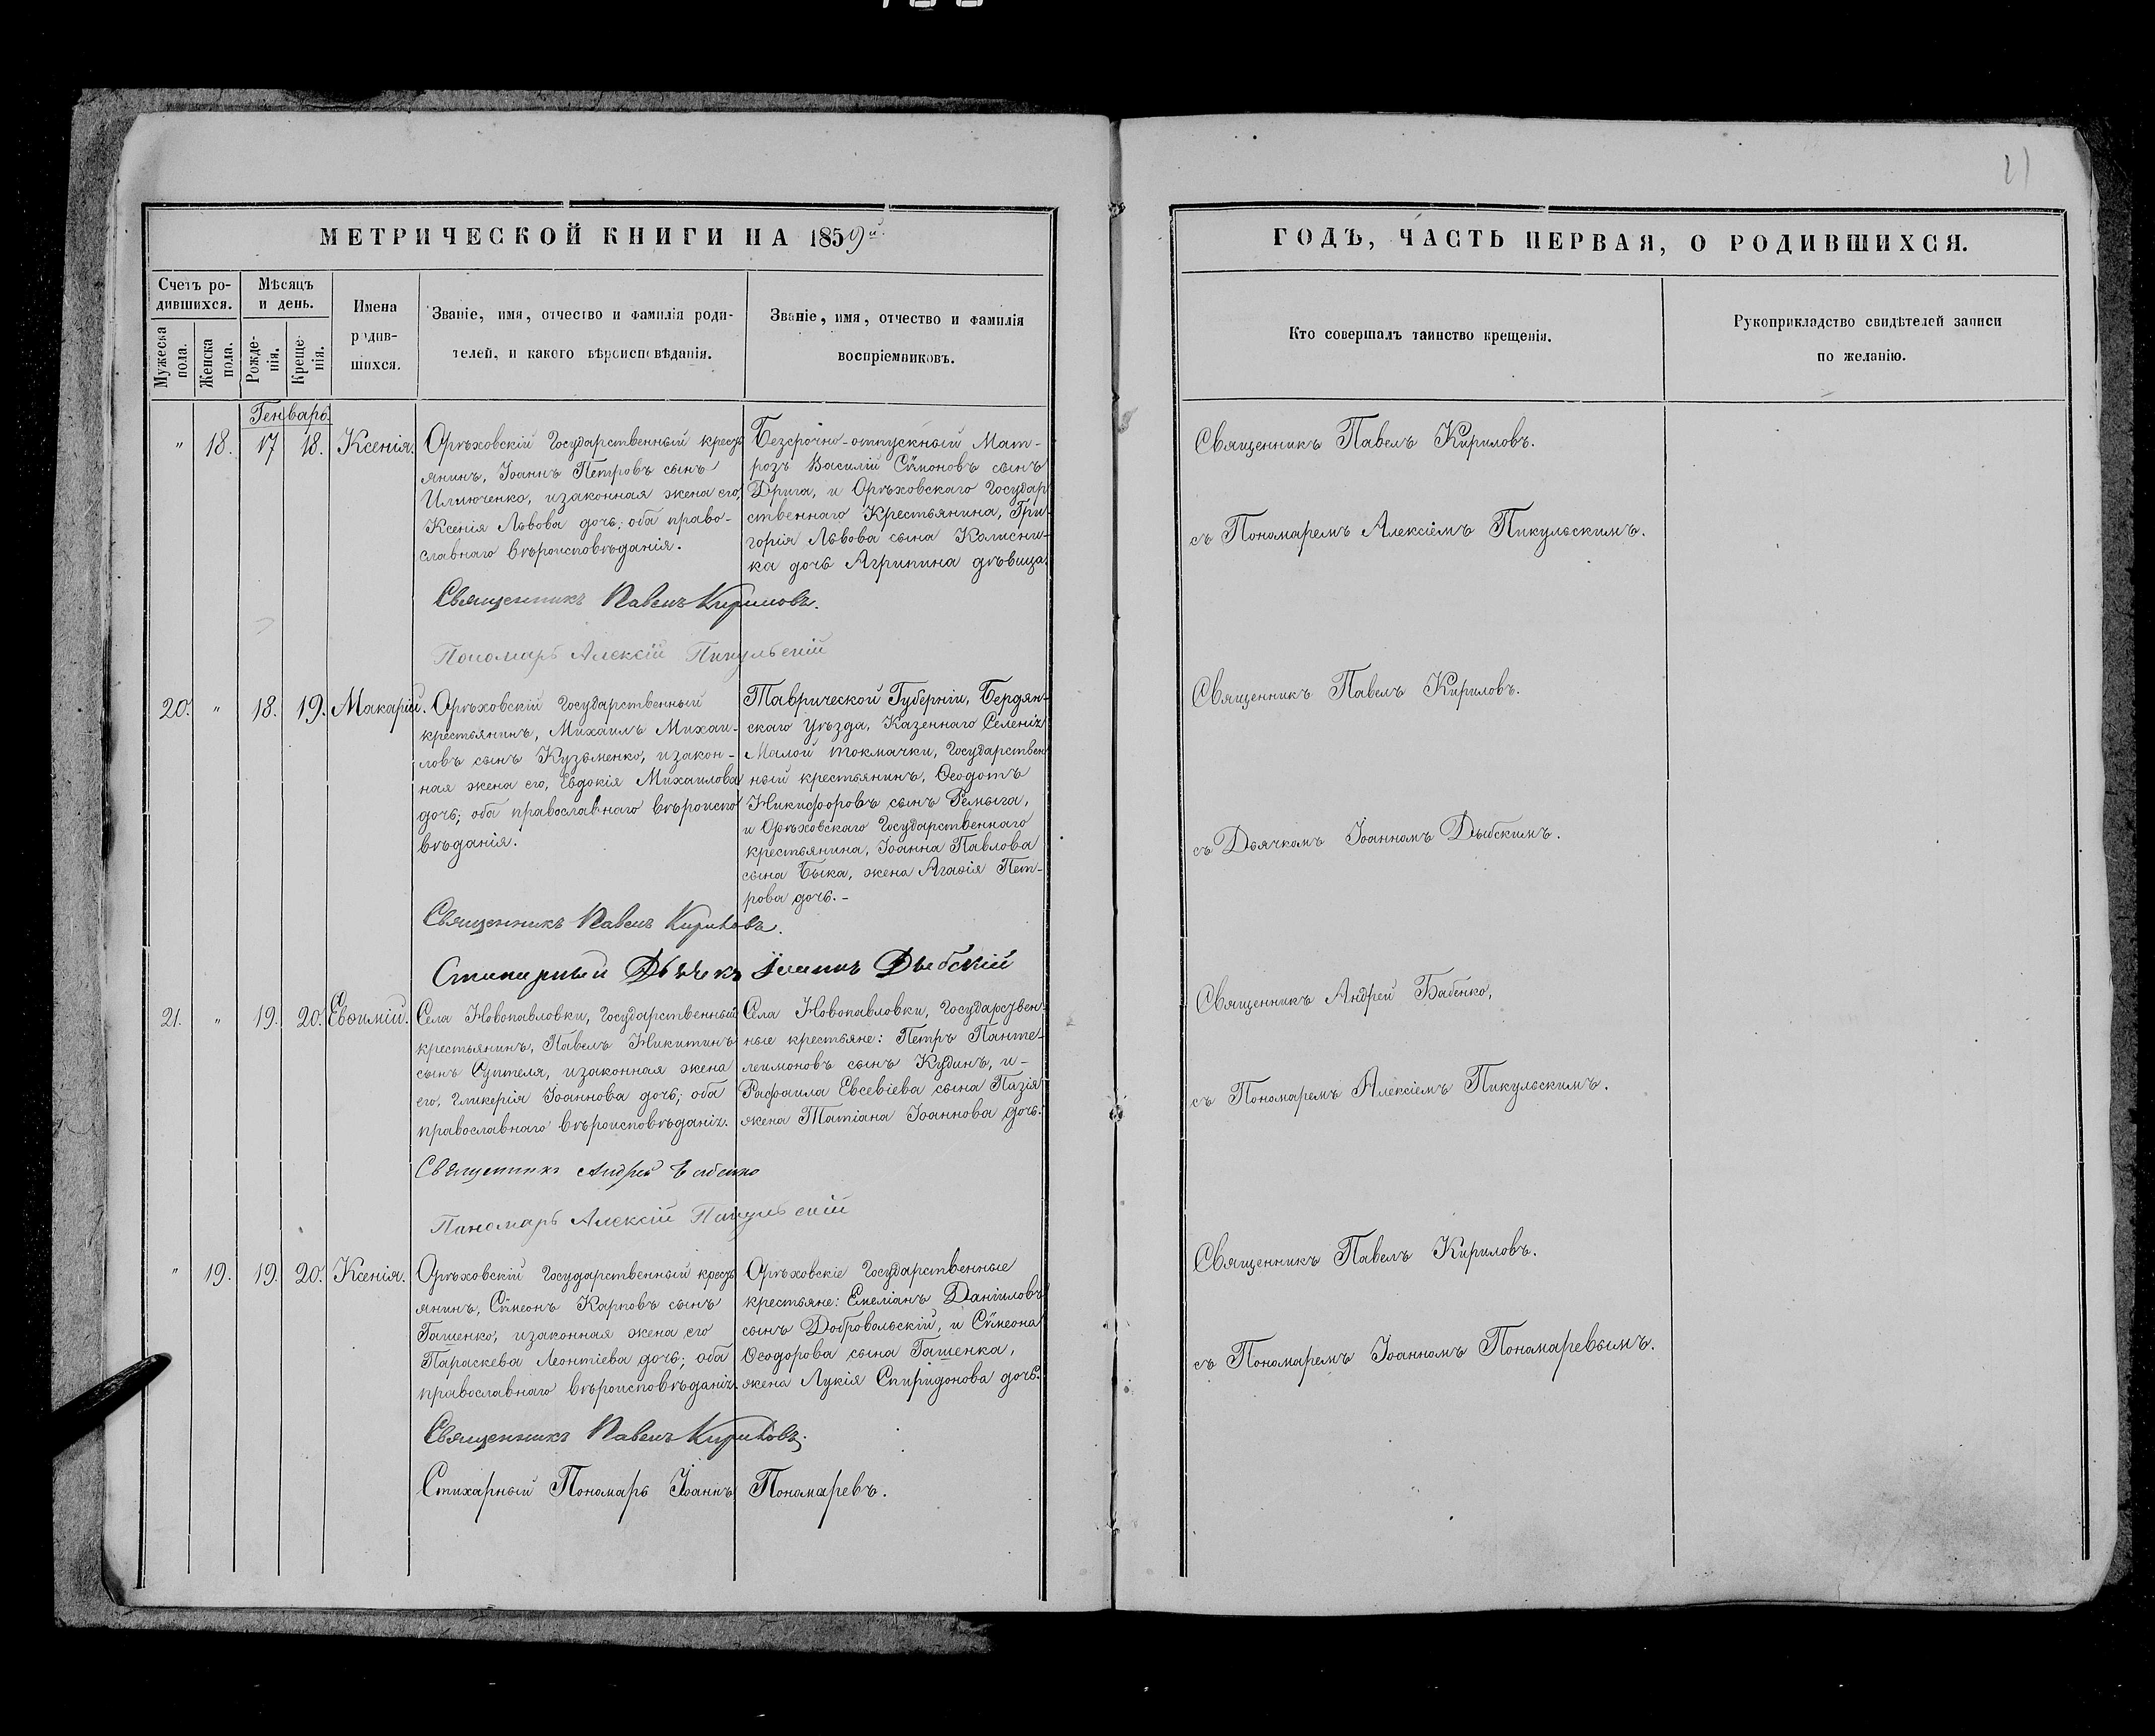 21
МЕТРИЧЕСКОЙ КНИГИ НА 1859й
ГОДЪ, ЧАСТЬ ПЕРВАЯ, О РОДИВШИХСЯ.
Счетъ ро-
дившихся.
Мужеска
пола.
Женска
пола.
Мѣсяцъ
и день.
Рожде-
нія.
Креще-
нія.
Имена
родив-
шихся.
Званіе, имя, отчество и фамилія роди-
телей, и какого вѣроисповѣданія.
Званіе, имя, отчество и фамилія
воспріемниковъ.
Кто совершалъ таинство крещенія.
Рукоприкладство свидѣтелей записи
по желанію.
Генварь.
" 18. 17 18. Ксенія.
Орѣховскій Государственный кресть
янинъ, Іоаннъ Петровъ сынъ
Илюченко, и законная жена его,
Ксенія Львова дочь; оба право-
славнаго вѣроисповѣданія.
Безсрочно-отпускный Мат-
розъ Василій Сѵмоновъ сынъ
Дрига, и Орѣховскаго Государ
ственнаго Крестьянина, Гри-
горія Львова сына Колисни-
ка дочь Агрипина дѣвица.
Священникъ Павелъ Кириловъ.
Пономарь Алексій Пикульскій
Священникъ Павелъ Кириловъ.
съ Пономаремъ Алексіемъ Пикульскимъ.
20. " 18. 19. Макарій.
Орѣховскій Государственный
крестьянинъ, Михаилъ Михаи-
ловъ сынъ Кузьменко, и закон-
ная жена его, Евдокія Михаилова
дочь; оба православнаго вѣроиспо
вѣданія.
Таврической Губерніи, Бердян-
скаго Уѣзда, Казеннаго Селенія
Малой Токмачки, Государствен
ный крестьянинъ, Ѳеодотъ
Никифоровъ сынъ Ремыга,
и Орѣховскаго Государственнаго
крестьянина, Іоанна Павлова
сына Быка, жена Агафія Пет-
рова дочь.-
Священникъ Павелъ Кириловъ.
Стихарный Дьячекъ Іоаннъ Дыбскій
Священникъ Павелъ Кириловъ.
съ Дьячкомъ Іоанномъ Дыбскимъ.
21. " 19. 20. Евѳимій.
Села Новопавловки, Государственный
крестьянинъ, Павелъ Никитинъ
сынъ, и законная жена
его, Гликерія Іоаннова дочь; оба
православнаго вѣроисповѣданія.
Села Новопавловки, Государствен-
ные крестьяне: Петръ Панте-
леимоновъ сынъ Кудинъ, и-
Рафаила Евсевіева сына Пазія
жена Татіана Іоаннова дочь.
Священникъ Андрей Бабенко
Пономарь Алексій Пикульскій
Священникъ Андрей Бабенко,
съ Пономаремъ Алексіемъ Пикульскимъ.
" 19. 19. 20. Ксенія.
Орѣховскій Государственный кресть
янинъ, Сѵмеонъ Карповъ сынъ
Гашенко, и законная жена его
Параскева Леонтіева дочь; оба
православнаго вѣроисповѣданія.
Орѣховскіе Государственные
крестьяне: Емеліанъ Даніиловъ
сынъ Добровольскій, и Сѵмеона
Ѳеодорова сына Гашенка,
жена Лукія Спиридонова дочь.
Священникъ Павелъ Кириловъ.
Стихарный Пономарь Іоаннъ Пономаревъ.
Священникъ Павелъ Кириловъ.
съ Пономаремъ Іоанномъ Пономаревымъ.